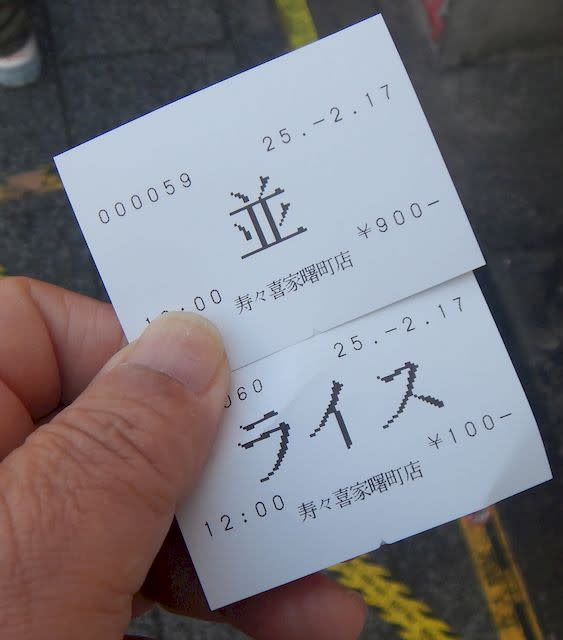 25.-2.17
000059
並
¥900-
寿々喜家曙町店
25.-2.17
060
ライス
¥100-
12:00 寿々喜家曙町店